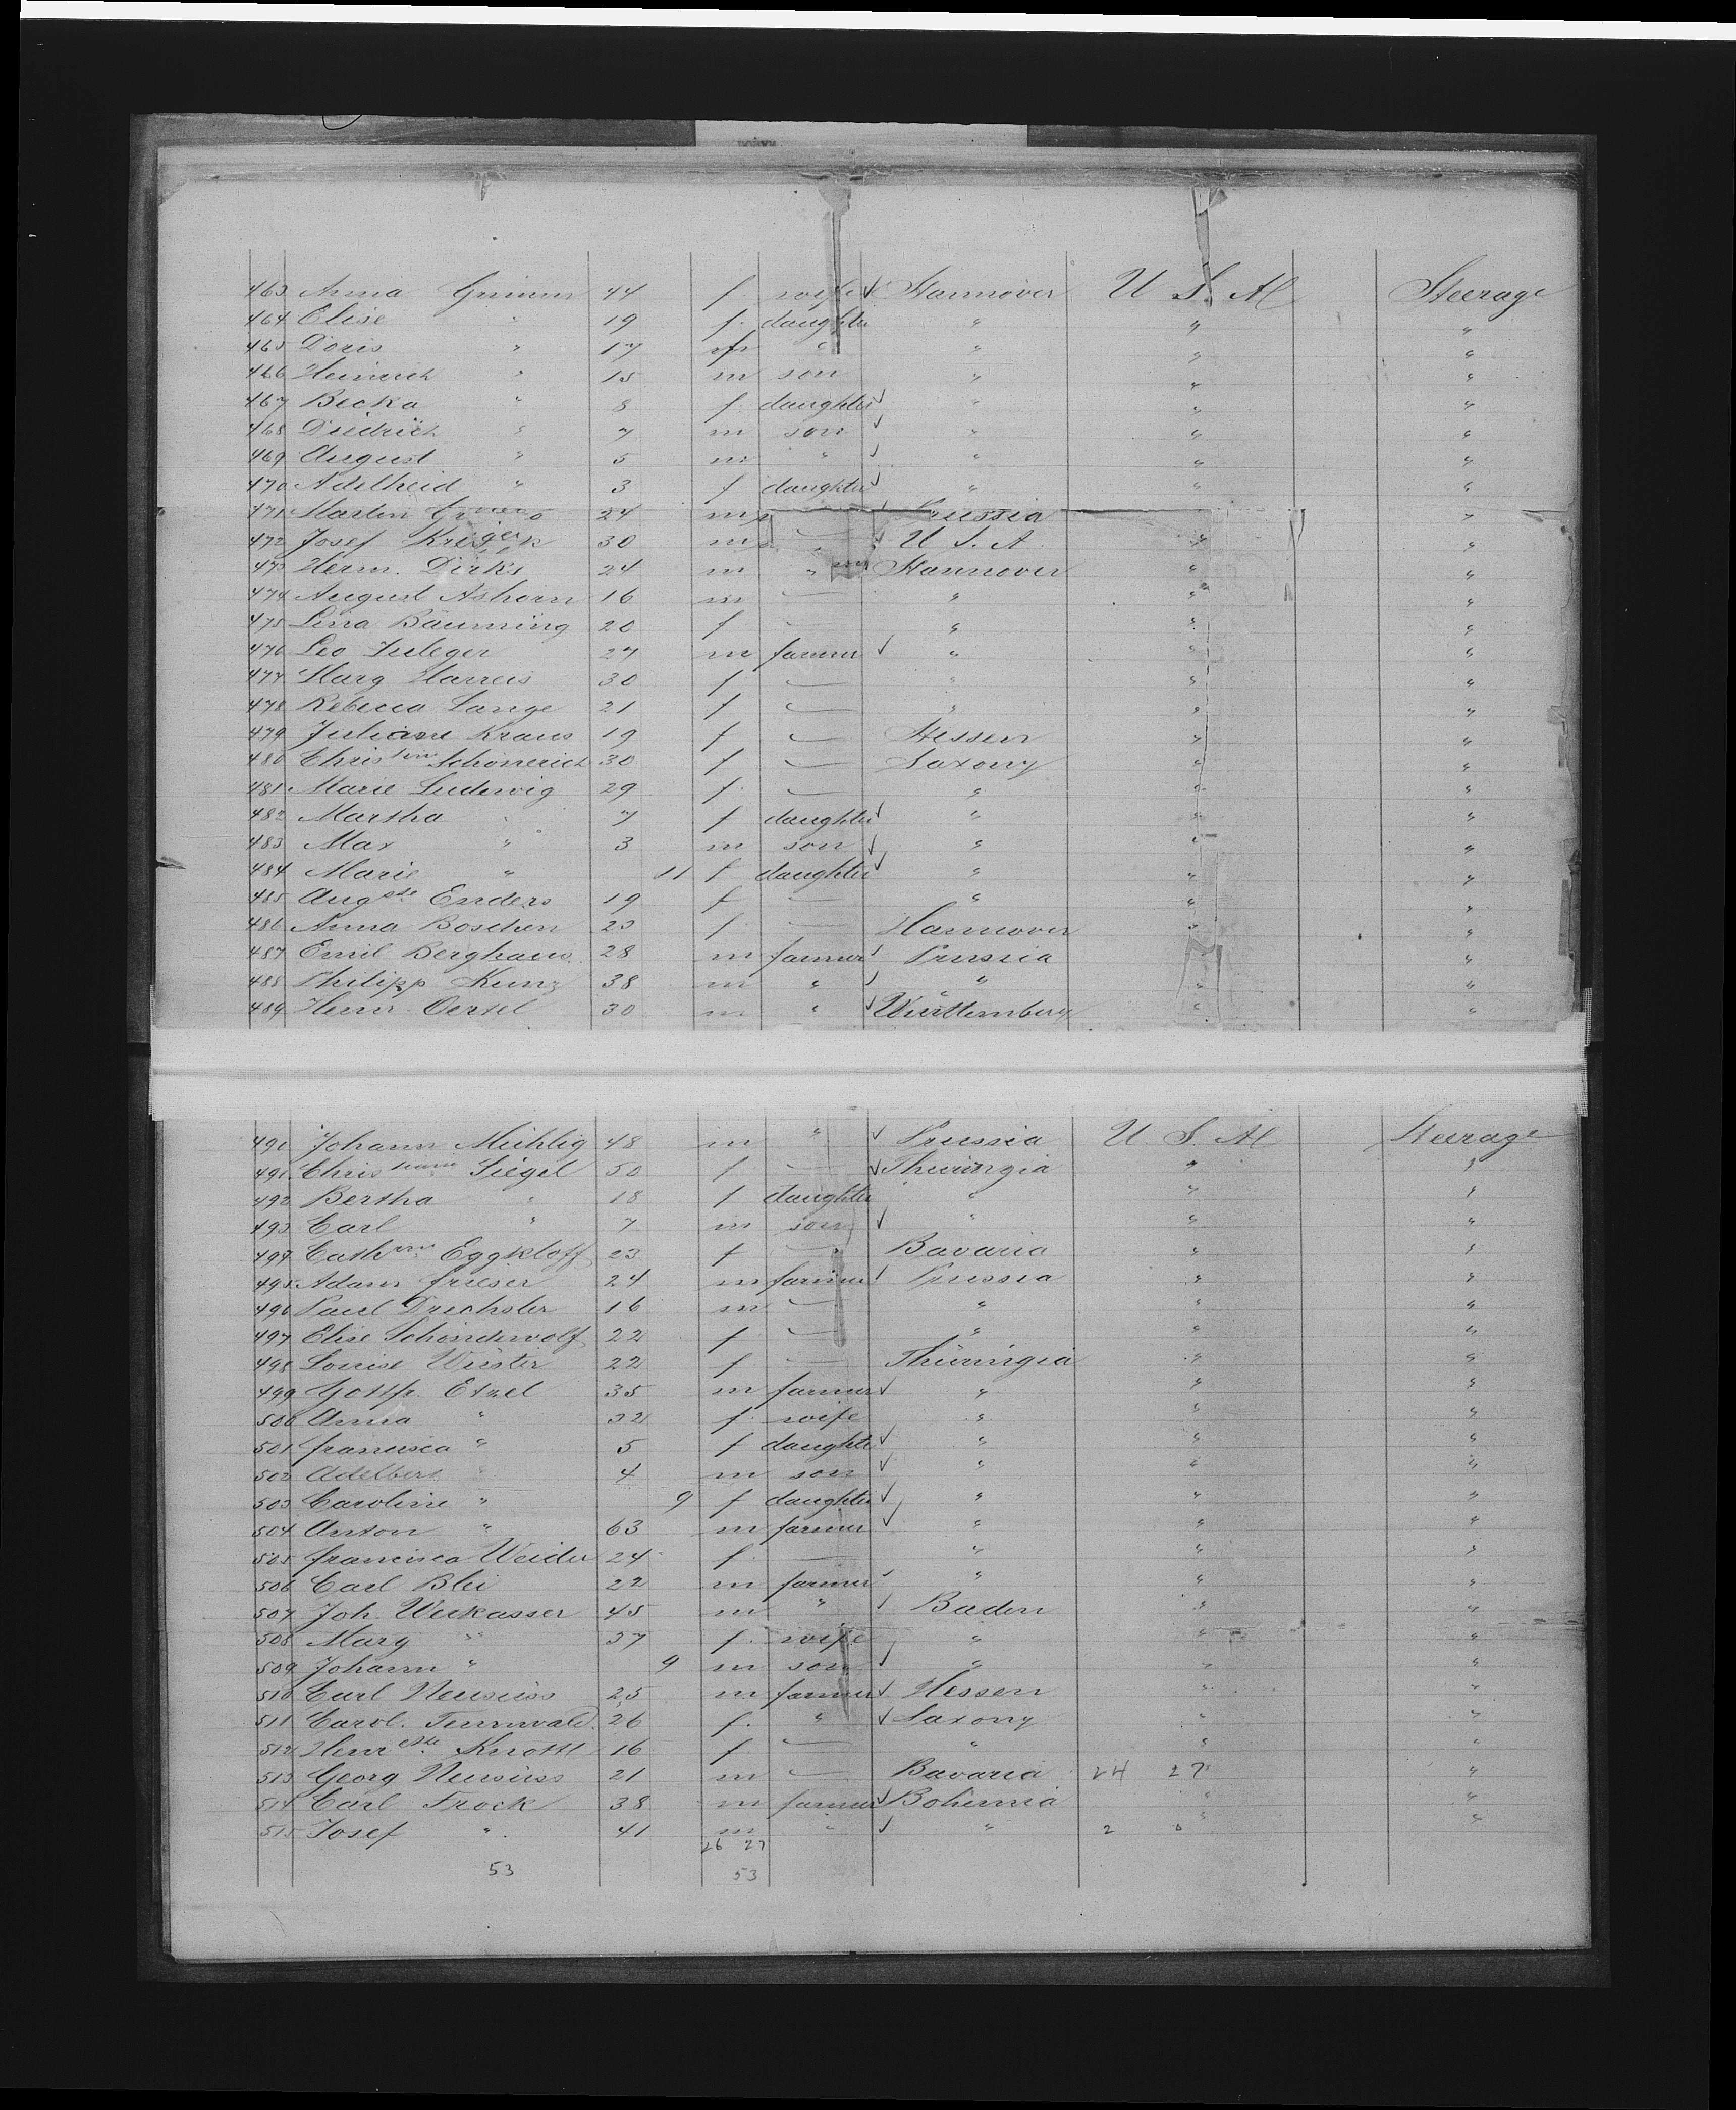 463 Anna Grimm 44 f. wife ✓ Hannover U S. A Steerage
464 Elise " 19 f. daughter " " "
465 Doris " 17 f " " " "
466 Heinrich " 15 m son " " "
467 Becka " 8 f. daughter ✓ " " "
468 Diedrich " 7 m son ✓ " " "
469 August " 5 m " ✓ " " "
470 Adelheid " 3 f daughter ✓ " " "
471 Martin 24 m ✓ Prussia "
472 Josef 30 m " ✓ U. S. A. " "
473 Herm. Dirks 24 m " Hannover " "
474 August Ashorn 16 m — " " "
475 Lina Bäuming 20 f — " " "
476 Leo 27 m farmer ✓ " " "
477 Marg Harreis 30 f — " " "
478 Rebecca Lange 21 f — " " "
479 Juliane Kraus 19 f — Hessen " "
480 Christine Schönerich 30 f — Saxony " "
481 Marie Ludewig 29 f. — " " "
482 Martha " 7 f daughter ✓ " " "
483 Max " 3 m son ✓ " " "
484 Marie " 11 f daughter ✓ " " "
485 Augste Enders 19 f — " " "
486 Anna Boschen 23 f. — Hannover " "
487 Emil Berghaus. 28 m farmer ✓ Prussia "
488 Philipp Kunz 38 m " ✓ " " "
489 Henr. Oertel 30 m " ✓ Württemberg " "
490 Johann Mühlig 48 m " ✓ Prussia U S. A Steerage
491 Christiane Siegel 50 f — ✓ Thüringia " "
492 Bertha " 18 f daughter " " "
493 Carl " 7 m son ✓ " " "
494 Cathrine Eggkloff 23 f — Bavaria " "
495 Adam frieser 24 m farmer ✓ Prussia " "
496 Paul Drechsler 16 m — " " "
497 Elise Schönderwolf 22 f — " " "
498 Louise Würster 22 f — Thüringia " "
499 Gottfr. Etzel 35 m farmer ✓ " " "
500 Anna " 32 f. wife " " "
501 francisca " 5 f daughter ✓ " " "
502 Adelbert " 4 m son ✓ " " "
503 Caroline " 9 f daughter ✓ " " "
504 Anton " 63 m farmer ✓ " " "
505 francisca Weider 24 f. — " " "
506 Carl Blei 22 m farmer ✓ " " "
507 Joh. Weckasser 45 m " ✓ Baden " "
508 Marg " 37 f. wife " " "
509 Johann " 9 m son ✓ " " "
510 Carl Neusüss 25 m farmer ✓ Hessen " "
511 Carol. 26 f. " ✓ Saxony " "
512 Henrette Knottl 16 f — " " "
513 Georg Neusüss 21 m — Bavaria 24 27 "
514 Carl Trock 38 m farmer ✓ Bohemia " "
515 Josef " 41 m " ✓ " 2 0 " "
26 27
53 53